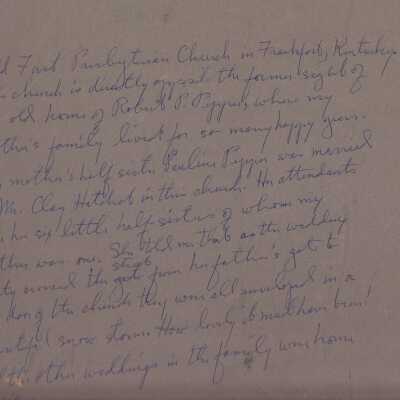 First Presbyterian Church in Frankfort, Kentucky
church is directly opposite the former sight of
old home of Robert P. Pepper, where my
family lived for so many happy years.
mother's half sister Pauline Pepper was married
Mr. Clay Hatchet in this church. Her attendants
her six little half sisters of whom my
was one. She told me that as the wedding
crossed the street from her father's gate to
door of the church they were all enveloped in a
snow storm. How lovely it must have been!
the other weddings in the family were home